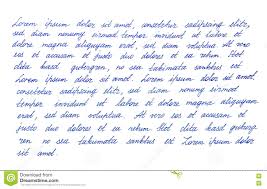 Lorem ipsum dolor sit amet, consetetur sadipscing elitr,
sed diam nonumy eirmod tempor invidunt ut labore et
dolore magna aliquyam erat, sed diam voluptua. At vero
eos et accusam et justo duo dolores et ea rebum. Stet
clita kasd gubergren, no sea takimata sanctus est
Lorem ipsum dolor sit amet. Lorem ipsum dolor sit amet,
consetetur sadipscing elitr, sed diam nonumy eirmod
tempor invidunt ut labore et dolore magna aliquyam
erat, sed diam voluptua. At vero eos et accusam et
justo duo dolores et ea rebum. Stet clita kasd
gubergren, no sea takimata sanctus est Lorem ipsum dolor
sit amet